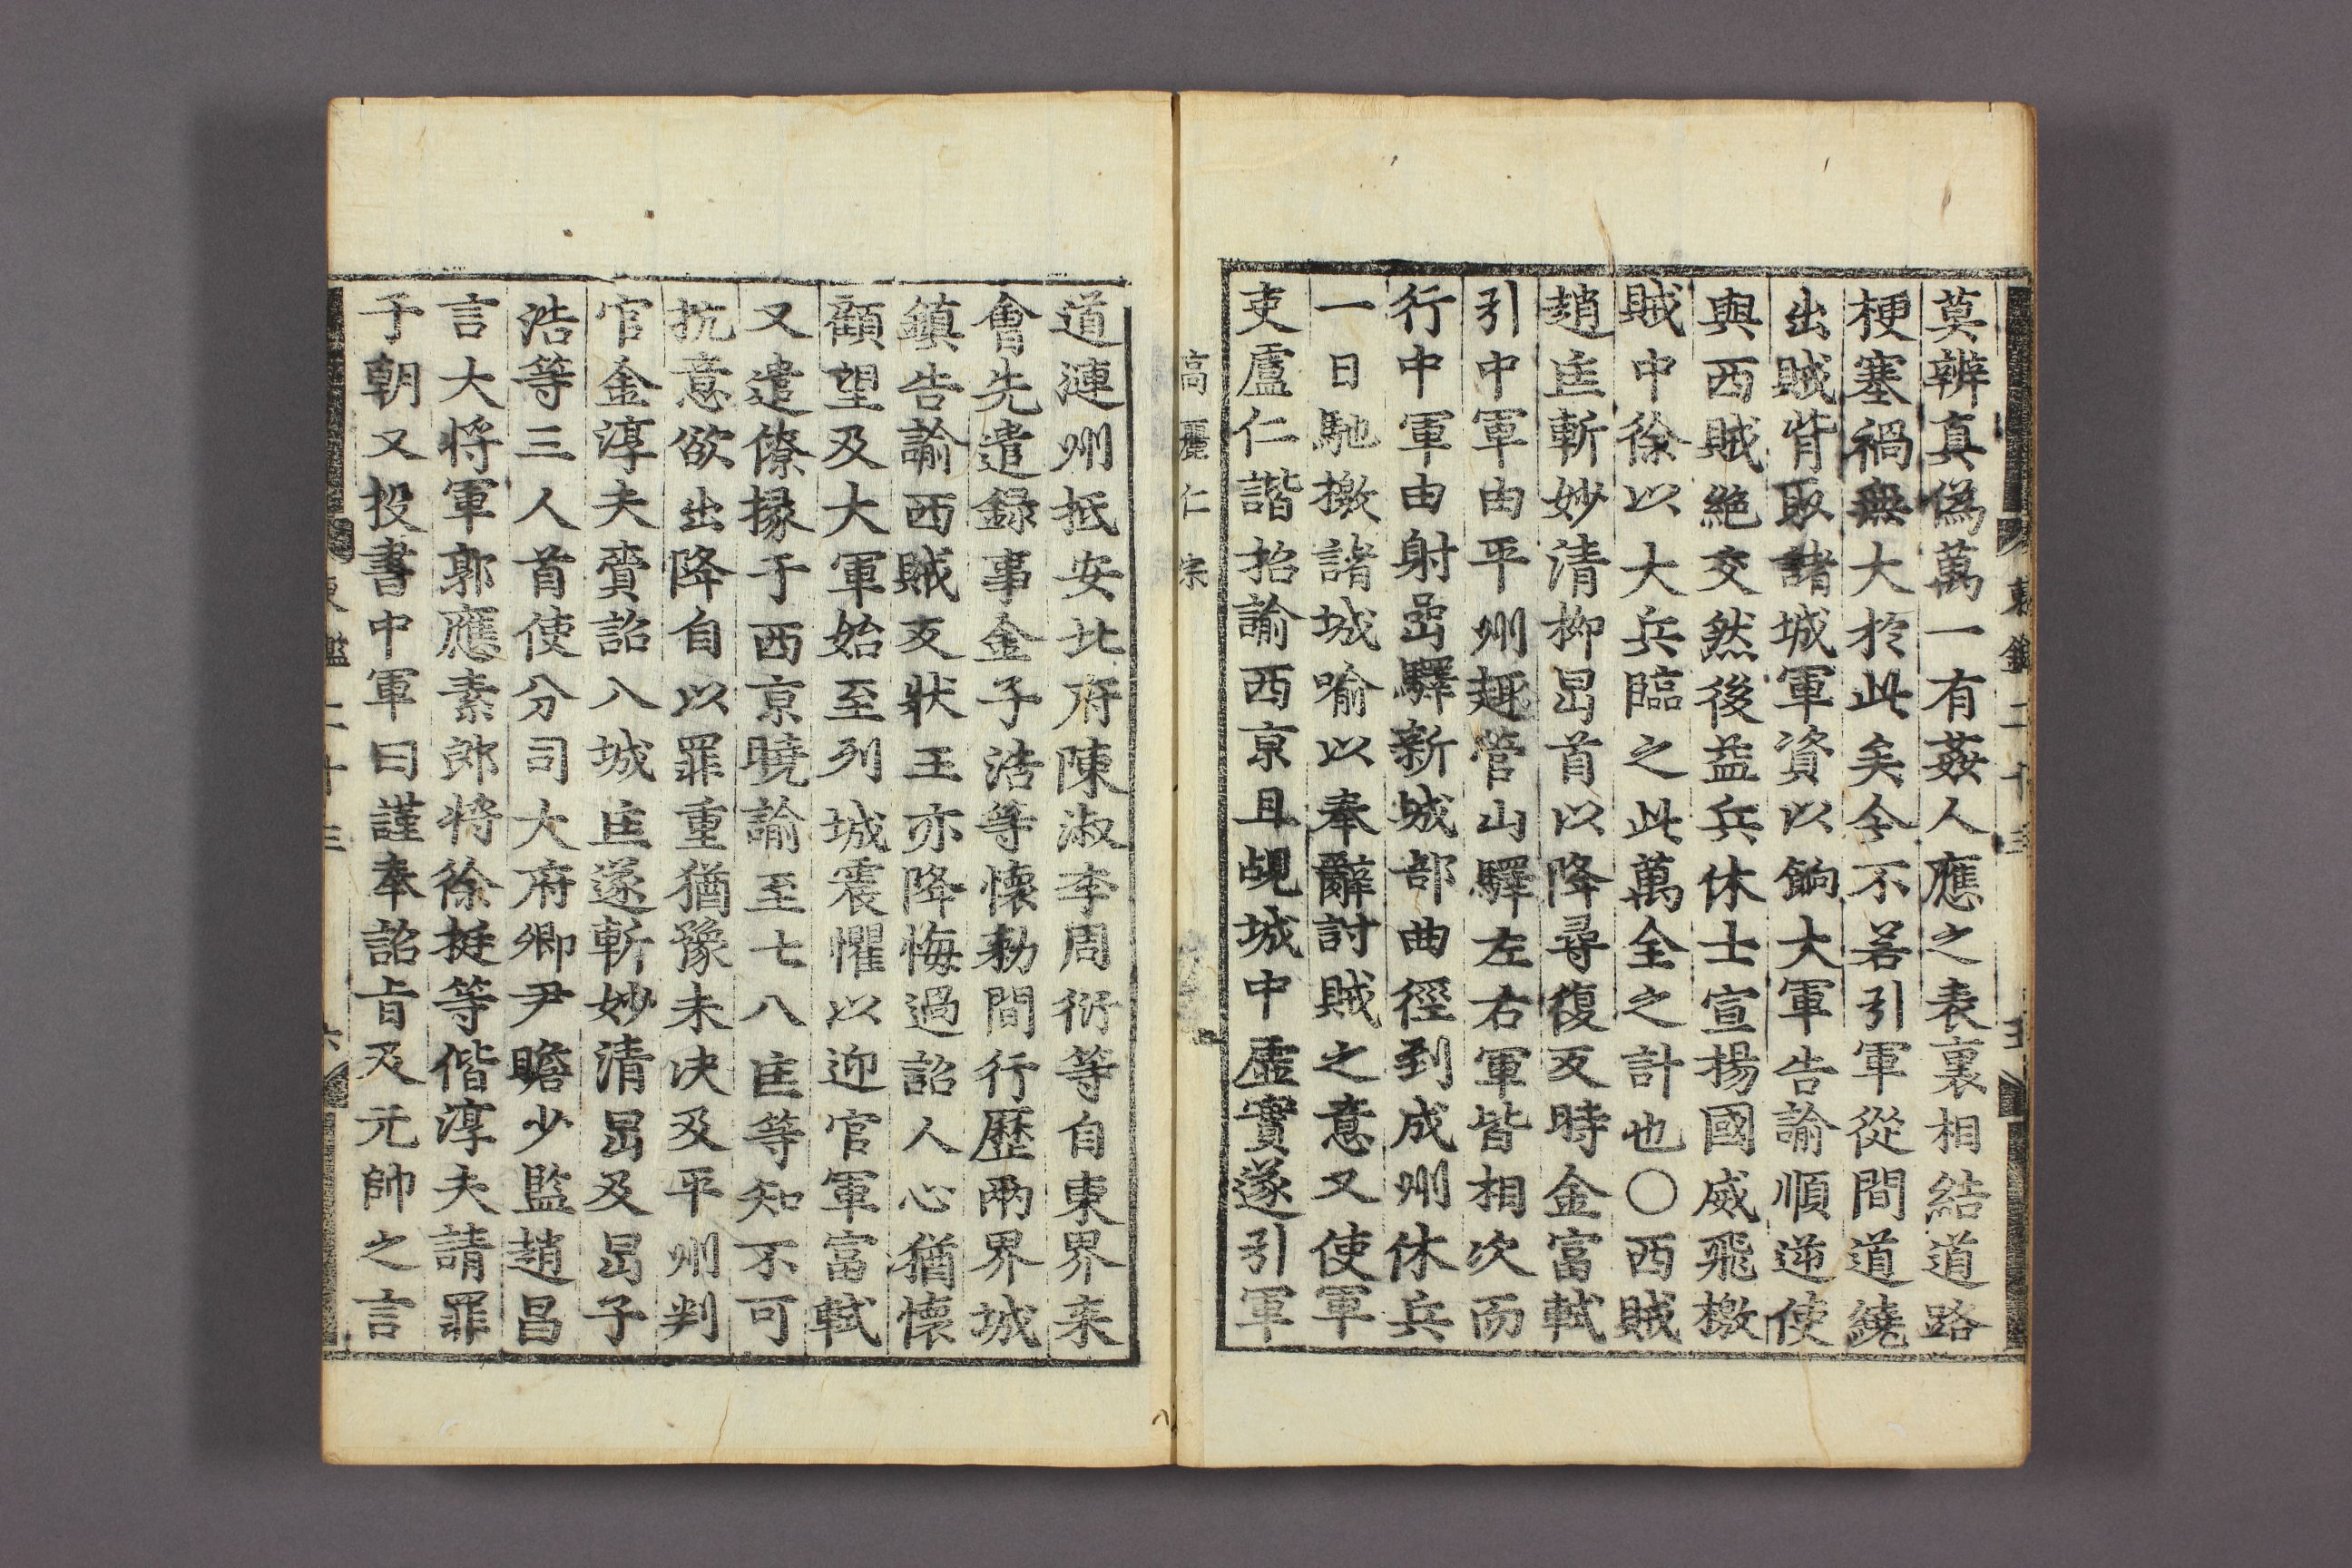 東鑑二十三
五
莫辨真僞萬一有姦人應之表裏相結道路
梗塞禍無大於此矣今不若引軍從間道繞
出賊背取諸城軍資以餉大軍告諭順逆使
與西賊絶交然後益兵休士宣揚國威飛檄
賊中徐以大兵臨之此萬全之計也〇西賊
趙匡斬妙清柳旵首以降尋復叛時金富軾
引中軍由平州趣管山驛左右軍皆相次而
行中軍由射嵒驛新城部曲徑到成州休兵
一日馳檄諸城喻以奉辭討賊之意又使軍
吏盧仁諧招諭西京且覘城中虛實遂引軍
高麗仁宗
道漣州抵安北府陳淑李周衍等自東界來
會先遣録事金子浩等懷勑間行歷兩界城
鎮告諭西賊反狀王亦降悔過詔人心猶懷
顧望及大軍始至列城震懼以迎官軍富軾
又遣僚掾于西京曉諭至七八匡等知不可
抗意欲出降自以罪重猶豫未決及平州判
官金淳夫賫詔入城匡遂斬妙清旵及旵子
浩等三人首使分司大府卿尹瞻少監趙昌
言大將軍郭應素郎將徐挺等偕淳夫請罪
于朝又投書中軍曰謹奉詔旨及元帥之言
東鑑二十三
六